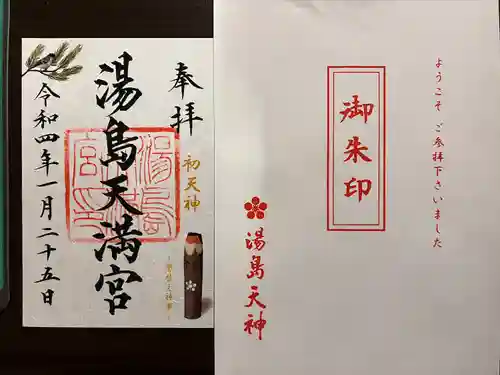 奉拝
初天神
湯島天満宮
令和四年一月二十五日
ようこそ ご参拝下さいました
御朱印
湯島天神